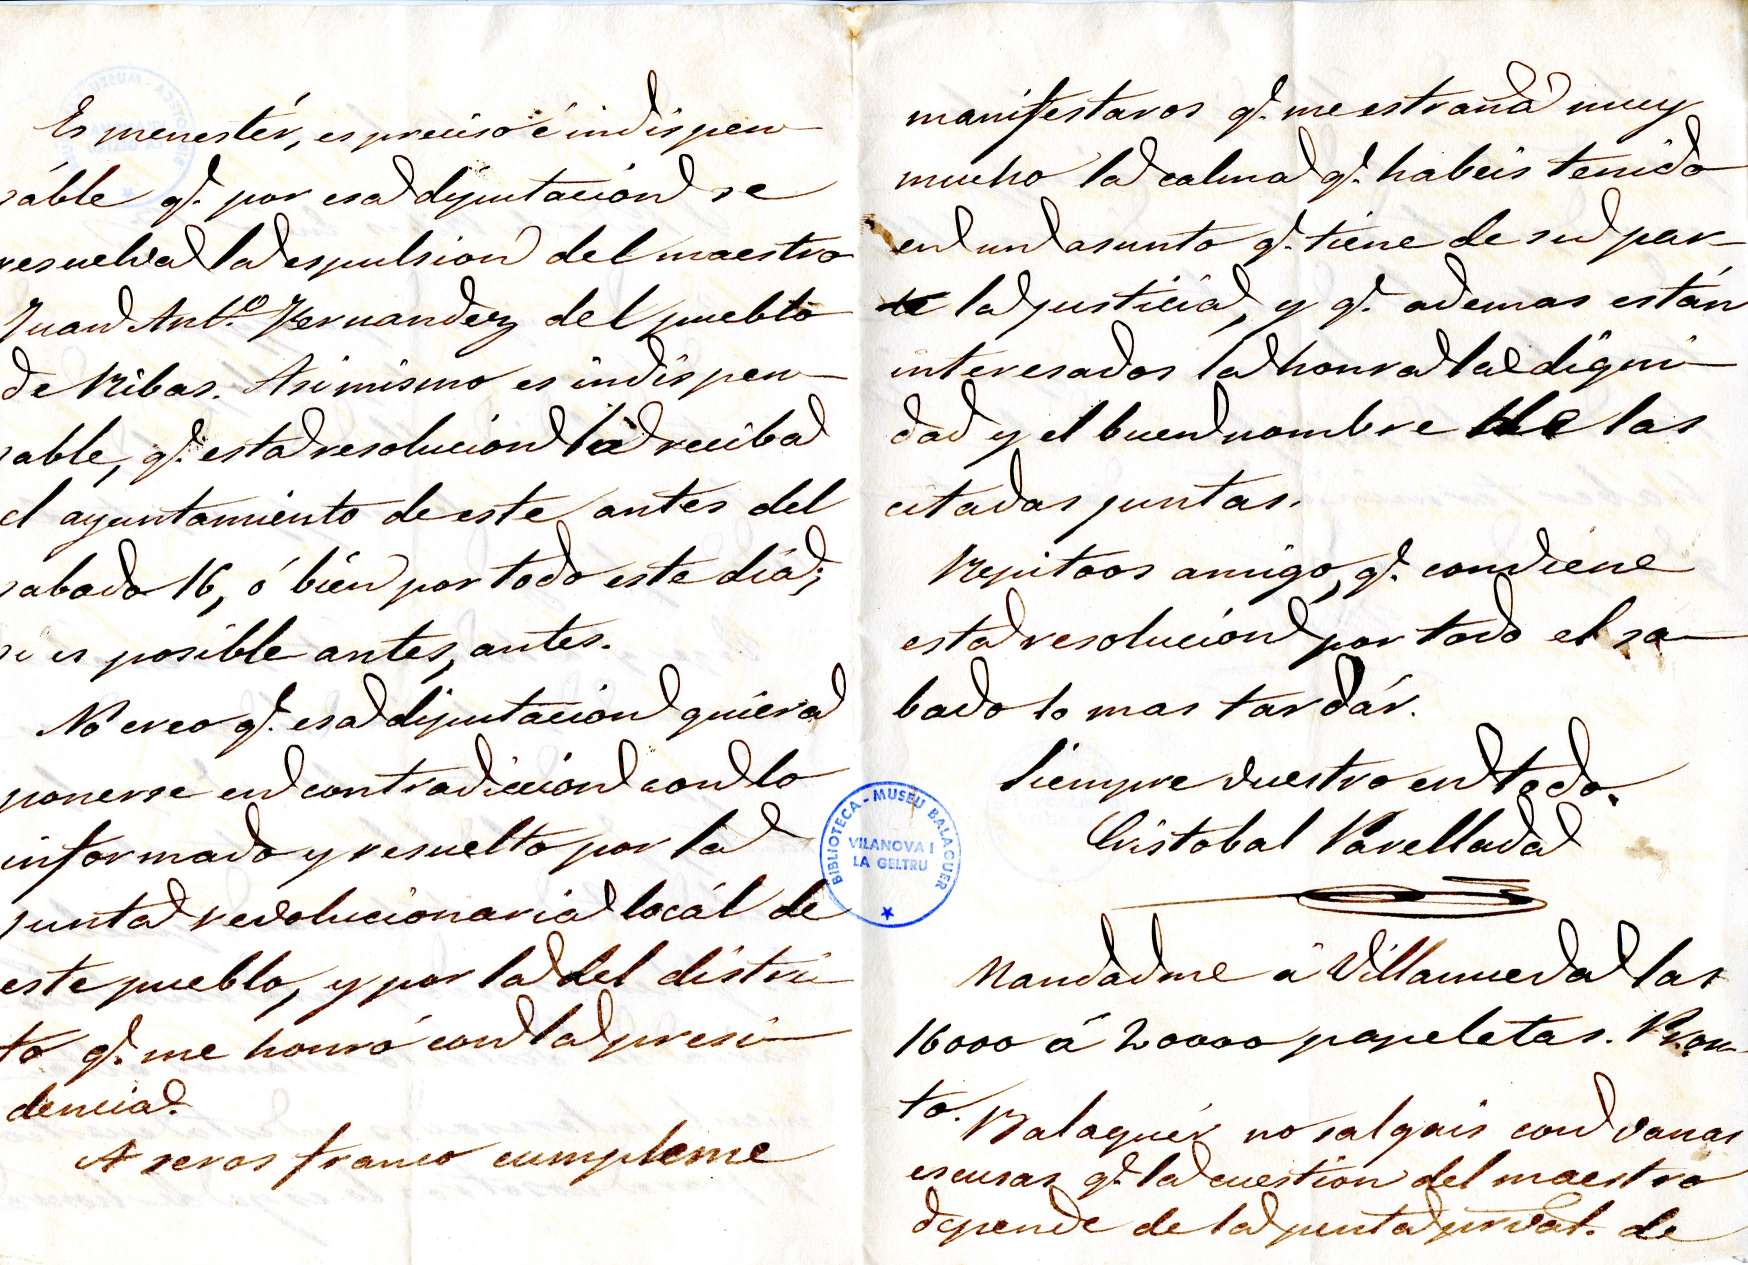 Es menestér, es preciso é indispen
sáble q.e por esa diputación se
resuelva la espulsion del maestro
Juan Ant.o Hernandez del pueblo
de Ribas. Asimismo es indispen
sable, q.e esta resolucion la reciba
el ayuntamiento de este antes del
sabado 16, ó bien por todo este día;
si es posible antes, antes.
No creo q.e esa diputación quiera
ponerse en contradicción con lo
informado y resuelto por la
junta revolucionaria locál de
este pueblo, y por la del distri
to q.e me honró con la presi
dencia.
A seros franco cumpleme
manifestaros q.e me estraña muy
mucho la calma q.e habeis tenido
en un asunto q.e tiene de su par
te la justicia, y q.e ademas están
interesados la honra la digni
dad y el buen nombre de las
citadas juntas.
Repitoos amigo, q.e conviene
esta resolución por todo el sa
bado lo mas tardár.
Siempre vuestro en todo.
Cristobal Ravellada
Mandadme á Villanueva las
16000 á 20000 papeletas. Pron
to.
Balaguér no salgais con vanas
escusas q.e la cuestion del maestro
depende de la junta proval. de
BIBLIOTECA - MUSEU BALAGUER
VILANOVA I
LA GELTRU